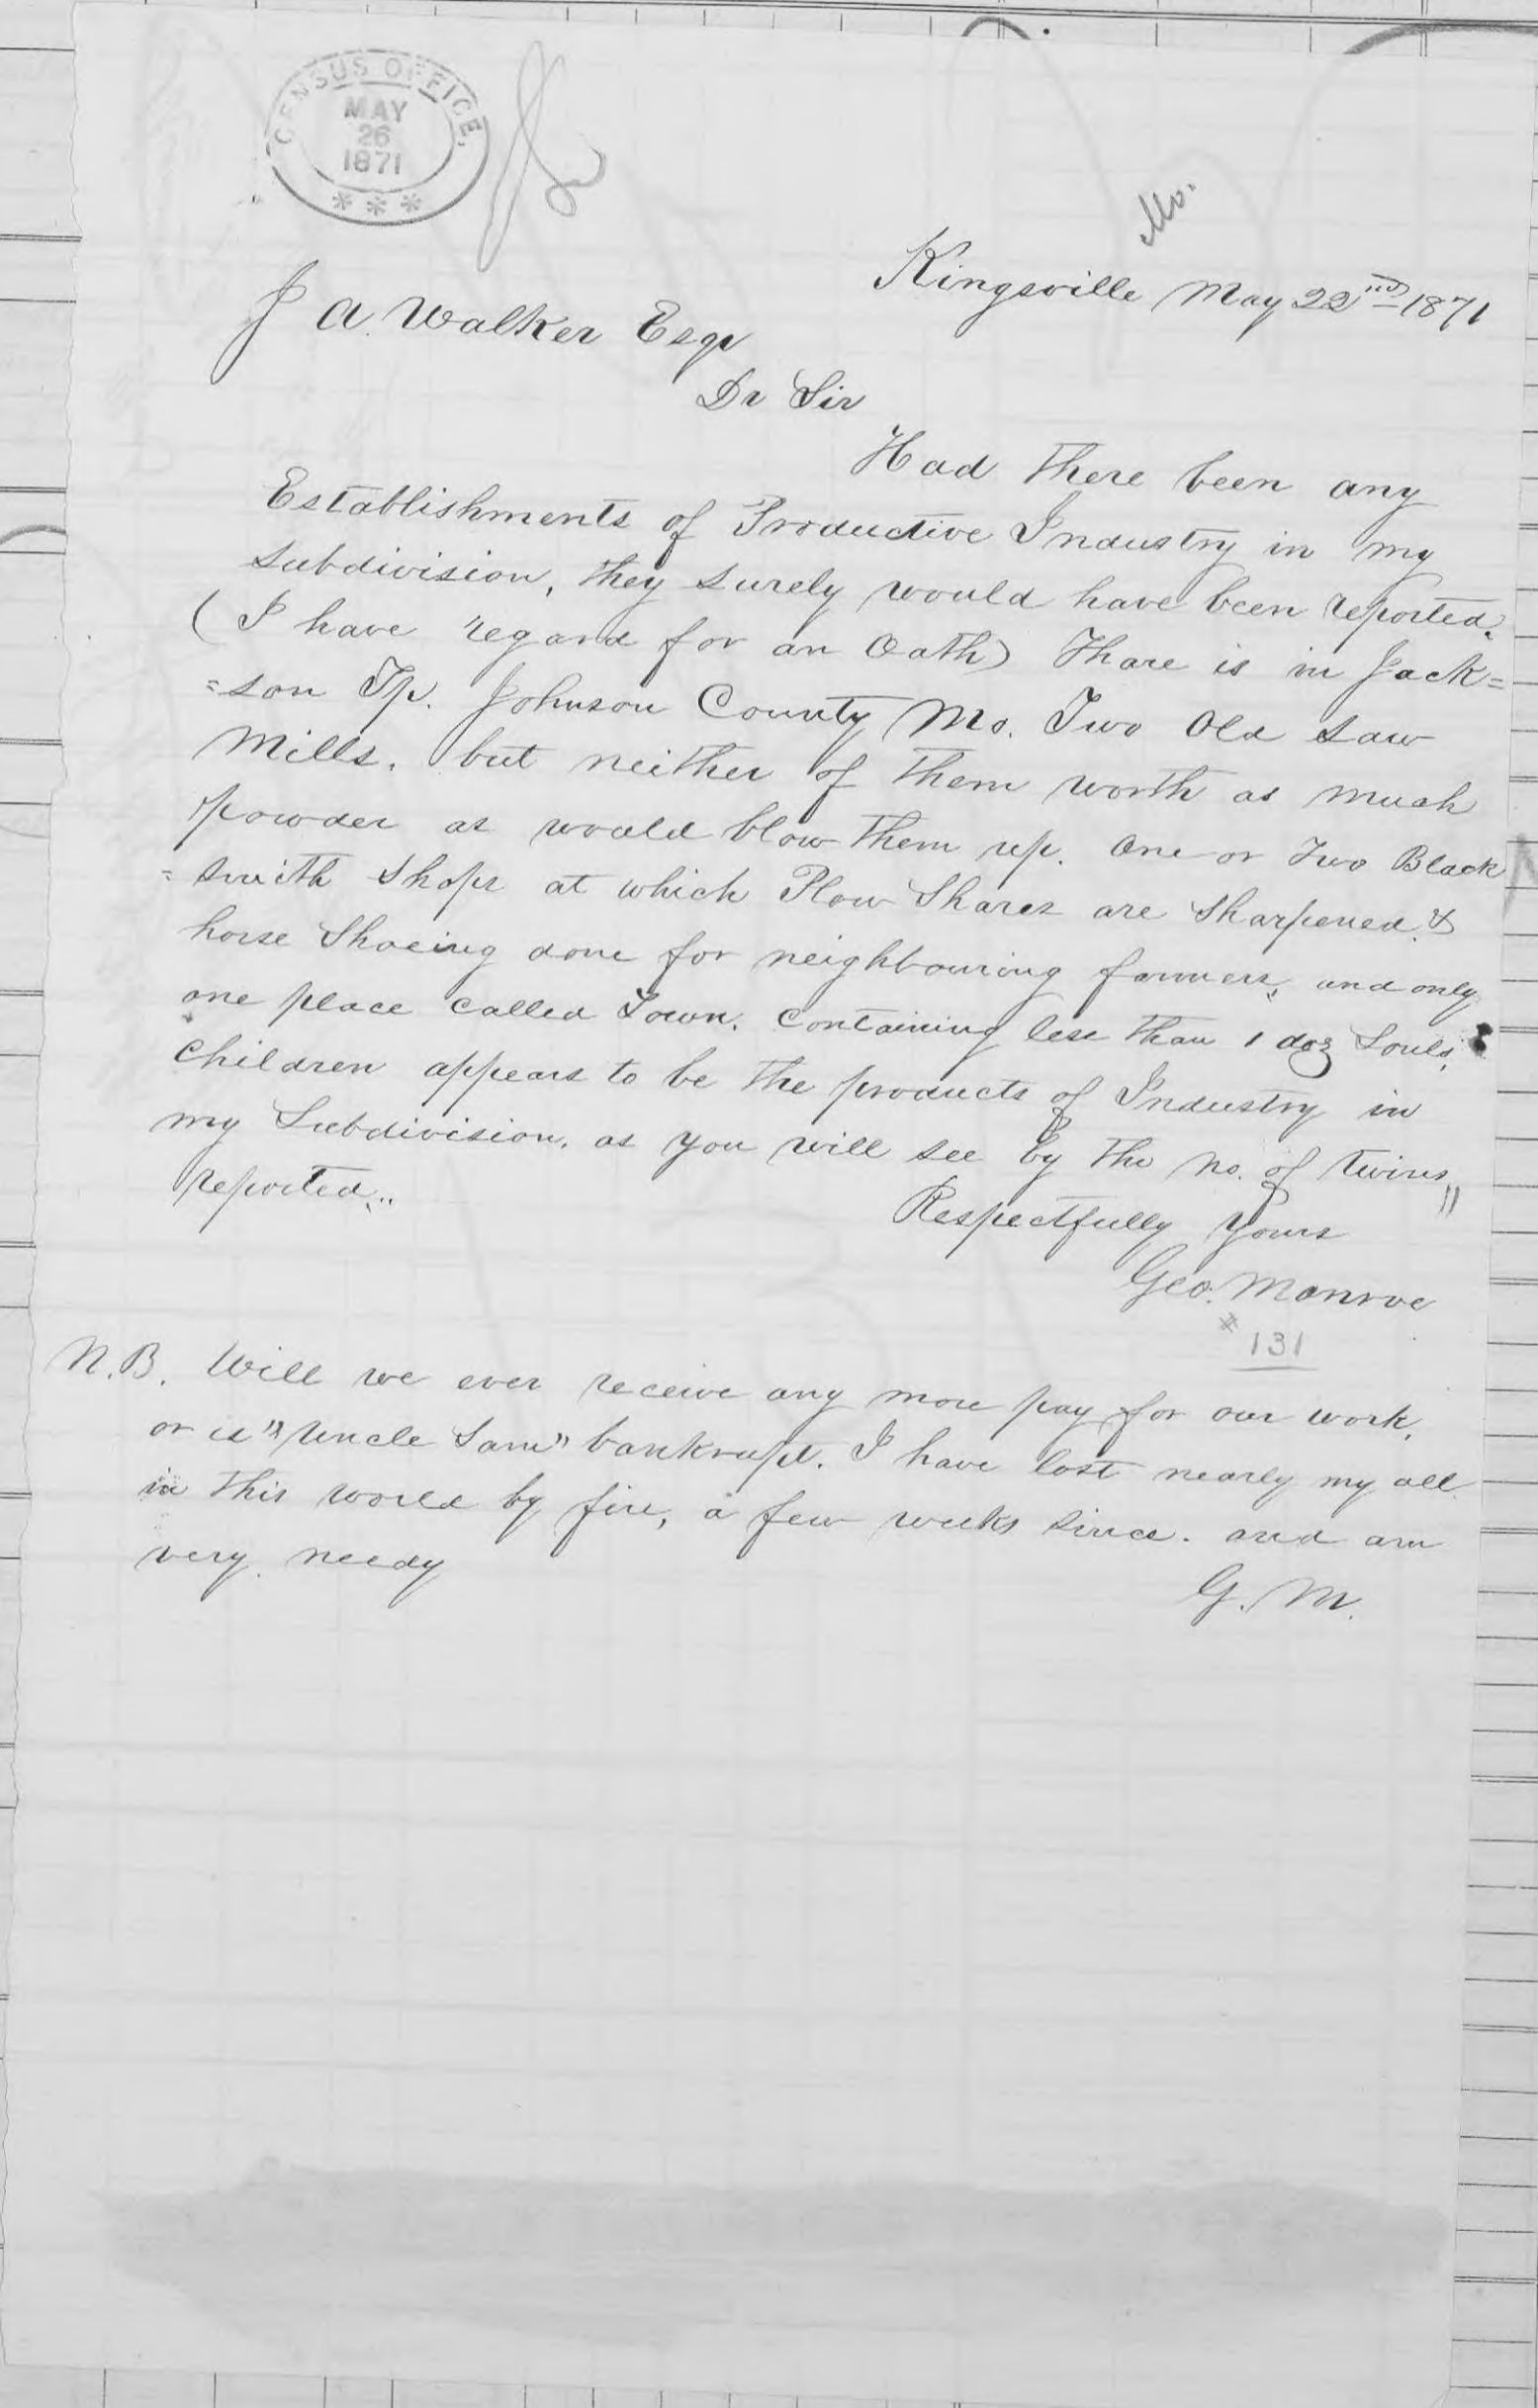 CENSUS OFFICE,
MAY
26
1871
* * *
Mo.
Kingsville May 22nd 1871
J A. Walker Esqr
Dr Sir
Had there been any
Establishments of Productive Industry in my
subdivision, they surely would have been reported.
(I have regard for an Oath) Thare is in Jack=
=son Tp. Johnson County Mo. Two Old Saw
Mills, but neither of them worth as much
powder as would blow them up. One or Two Black
=smith Shops at which Plow Shares are sharpened, &
horse Shoeing done for neighbouring farmers, and only
one place called Town, containing less than 1 doz Souls,
Children appears to be the products of Industry in
my Subdivision, as you will see by the no. of twins
reported.
Respectfully Yours
Geo. Monroe
# 131
N.B. Will we ever receive any more pay for our work,
or is "Uncle Sam" bankrupt. I have lost nearly my all
in this world by fire, a few weeks since. and am
very needy
G. M.